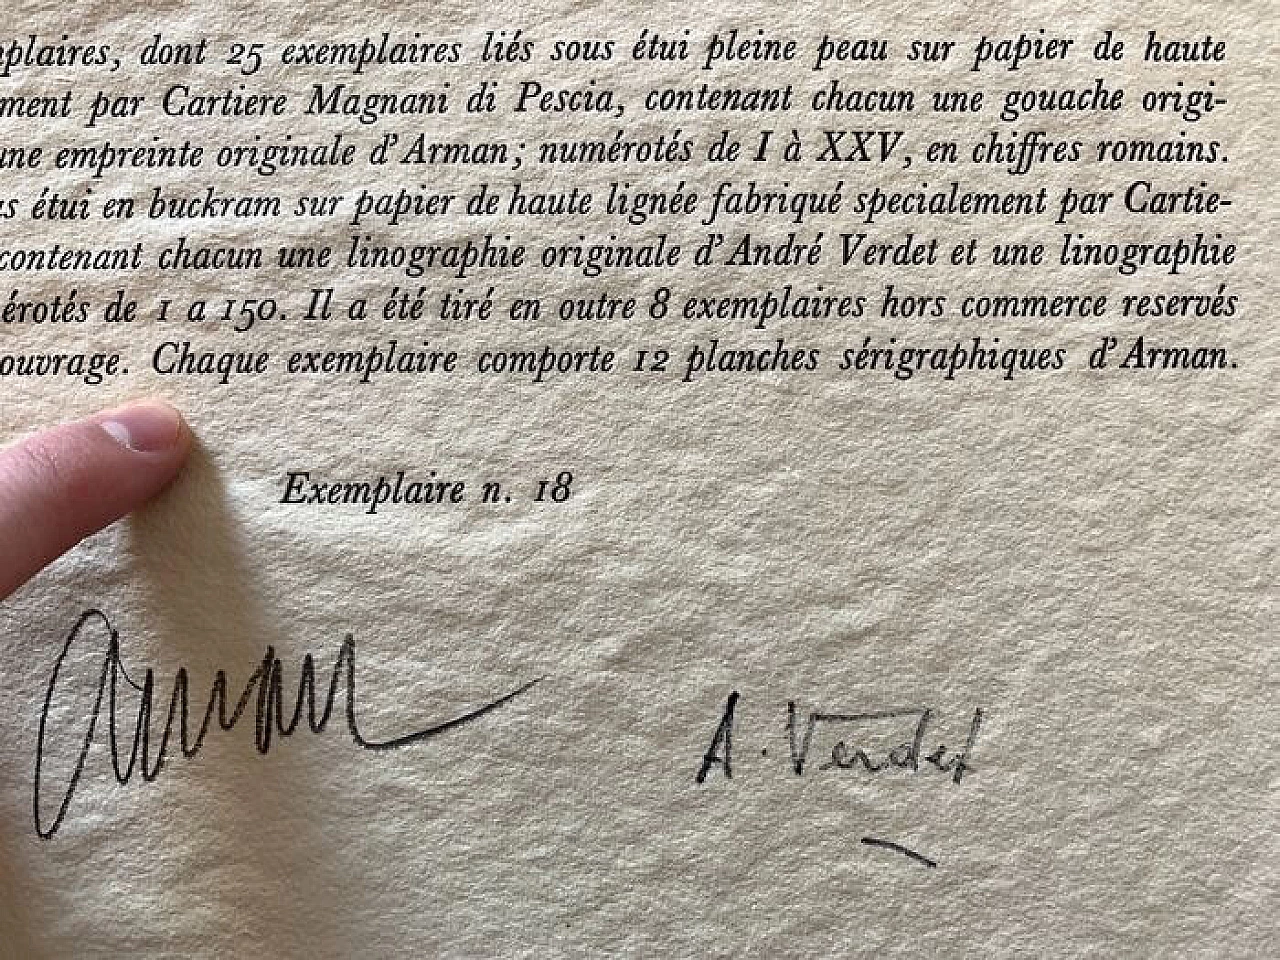 plaires, dont 25 exemplaires liés sous étui pleine peau sur papier de haute
ment par Cartiere Magnani di Pescia, contenant chacun une gouache origi-
une empreinte originale d'Arman; numérotés de I à XXV, en chiffres romains.
s étui en buckram sur papier de haute lignée fabriqué specialement par Cartie-
contenant chacun une linographie originale d'André Verdet et une linographie
érotés de 1 a 150. Il a été tiré en outre 8 exemplaires hors commerce reservés
ouvrage. Chaque exemplaire comporte 12 planches sérigraphiques d'Arman.
Exemplaire n. 18
Arman
A. Verdet